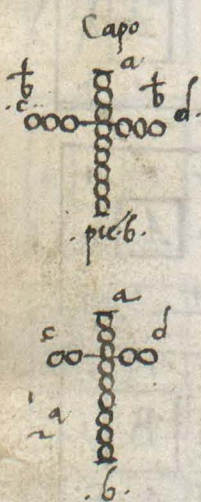 Capo
a
b b
.c. d.
.pie.b.
a
c d
.b.